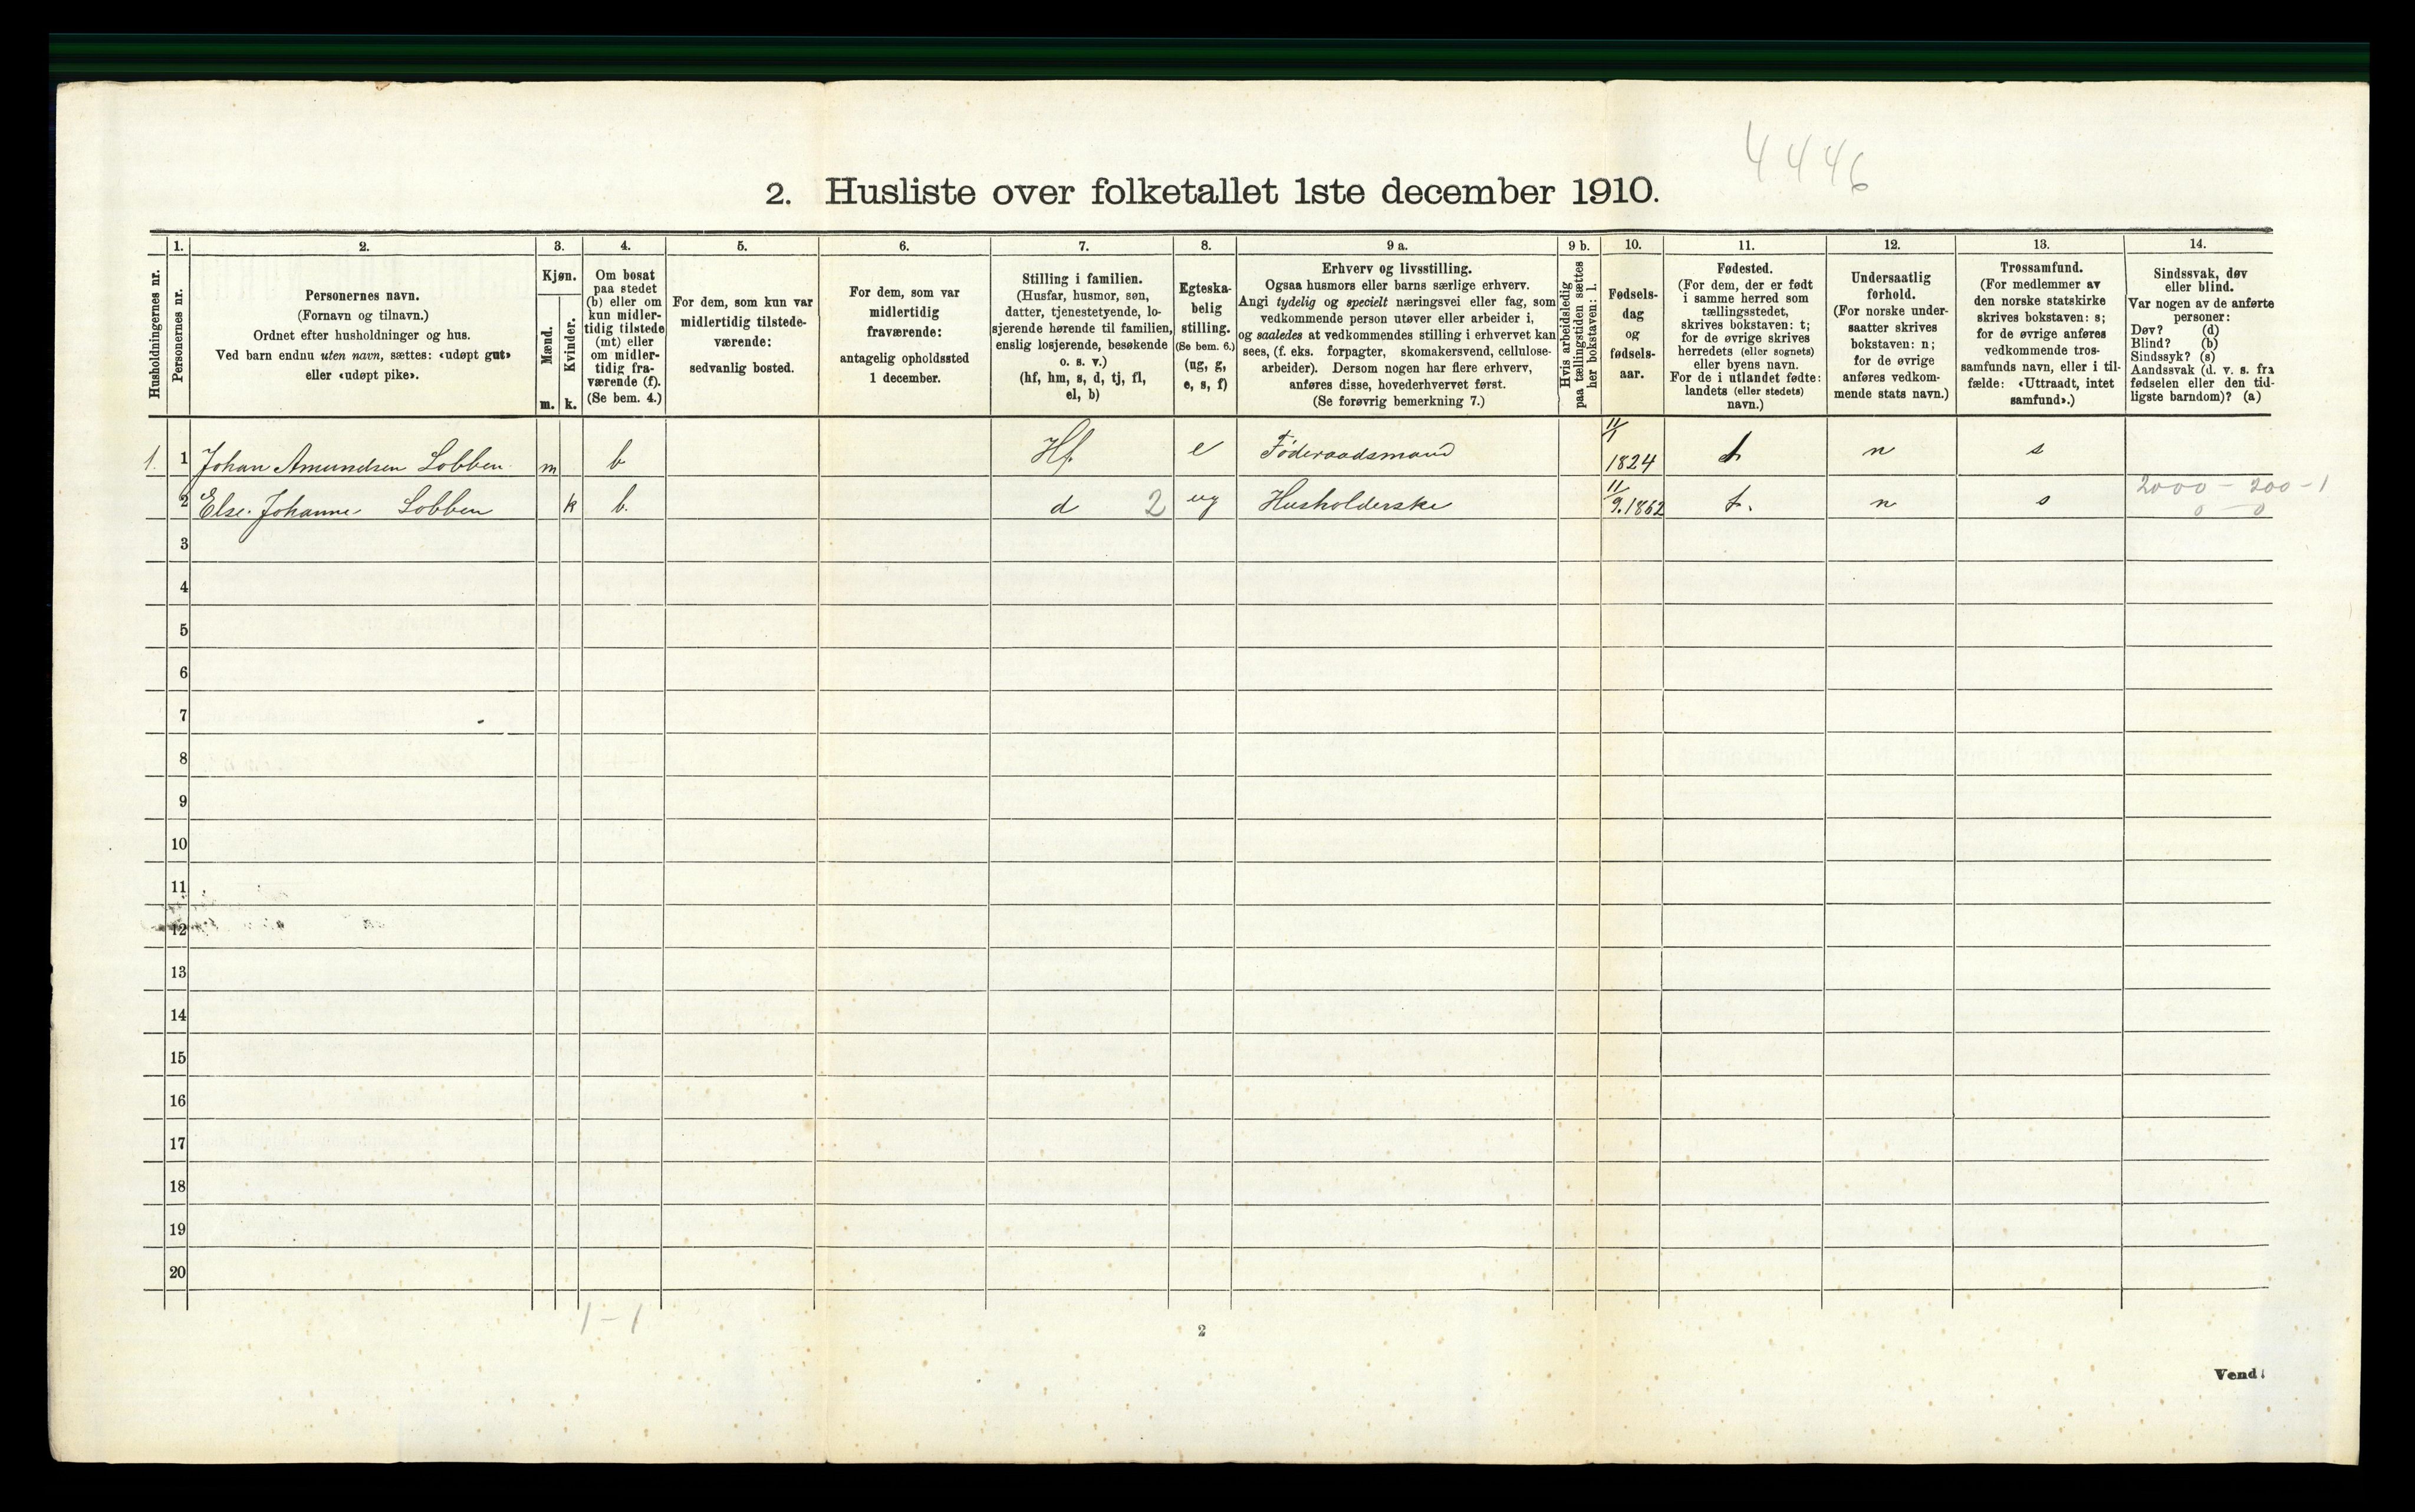 4446
2. Husliste over folketallet 1ste december 1910.
Husholdningernes nr.
1.
Personernes nr.
2.
Personernes navn.
(Fornavn og tilnavn.)
Ordnet efter husholdninger og hus.
Ved barn endnu uten navn, sættes: «udøpt gut»
eller «udøpt pike».
3.
Kjøn.
Mænd.
Kvinder.
m. k.
4.
Om bosat
paa stedet
(b) eller om
kun midler-
tidig tilstede
(mt) eller
om midler-
tidig fra-
værende (f).
(Se bem. 4.)
5.
For dem, som kun var
midlertidig tilstede-
værende:
sedvanlig bosted.
6.
For dem, som var
midlertidig
fraværende:
antagelig opholdssted
1 december.
7.
Stilling i familien.
(Husfar, husmor, søn,
datter, tjenestetyende, lo-
sjerende hørende til familien,
enslig losjerende, besøkende
o. s. v.)
(hf, hm, s, d, tj, fl,
el, b)
8.
Egteska-
belig
stilling.
(Se bem. 6.)
(ug, g,
e, s, f)
9 a.
Erhverv og livsstilling.
Ogsaa husmors eller barns særlige erhverv.
Angi tydelig og specielt næringsvei eller fag, som
vedkommende person utøver eller arbeider i,
og saaledes at vedkommendes stilling i erhvervet kan
sees, (f. eks. forpagter, skomakersvend, cellulose-
arbeider). Dersom nogen har flere erhverv,
anføres disse, hovederhvervet først.
(Se forøvrig bemerkning 7.)
9 b.
Hvis arbeidsledig
paa tællingstiden sættes
her bokstaven: l.
10.
Fødsels-
dag
og
fødsels-
aar.
11.
Fødested.
(For dem, der er født
i samme herred som
tællingsstedet,
skrives bokstaven: t;
for de øvrige skrives
herredets (eller sognets)
eller byens navn.
For de i utlandet fødte:
landets (eller stedets)
navn.)
12.
Undersaatlig
forhold.
(For norske under-
saatter skrives
bokstaven: n;
for de øvrige
anføres vedkom-
mende stats navn.)
13.
Trossamfund.
(For medlemmer av
den norske statskirke
skrives bokstaven: s;
for de øvrige anføres
vedkommende tros-
samfunds navn, eller i til-
fælde: «Uttraadt, intet
samfund».)
14.
Sindssvak, døv
eller blind.
Var nogen av de anførte
personer:
Døv? (d)
Blind? (b)
Sindssyk? (s)
Aandssvak (d. v. s. fra
fødselen eller den tid-
ligste barndom)? (a)
1. 1 Johan Amundsen Lobben m b Hf. e Føderaadsmand 11/1 1824 t n s
2 Else Johanne Lobben k b. d 2 ug Husholderske 11/9.1862 t. n s 2000 - 200 - 1
0 - 0
3
4
5
6
7
8
9
10
11
12
13
14
15
16
17
18
19
20
1 - 1
2
Vend!